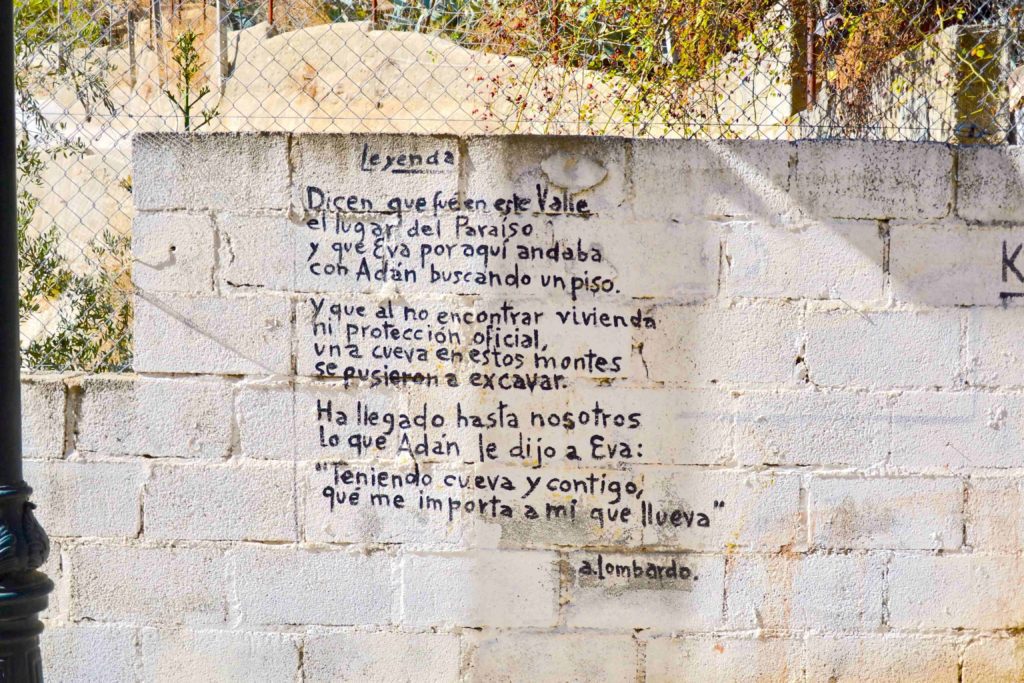 Leyenda
Dicen que fué en este Valle
el lugar del Paraíso
y que Eva por aquí andaba
con Adán buscando un piso.
Y que al no encontrar vivienda
ni protección oficial,
una cueva en estos montes
se pusieron a excavar.
Ha llegado hasta nosotros
lo que Adán le dijo a Eva:
"Teniendo cueva y contigo,
qué me importa a mi que llueva"
a.lombardo.
K